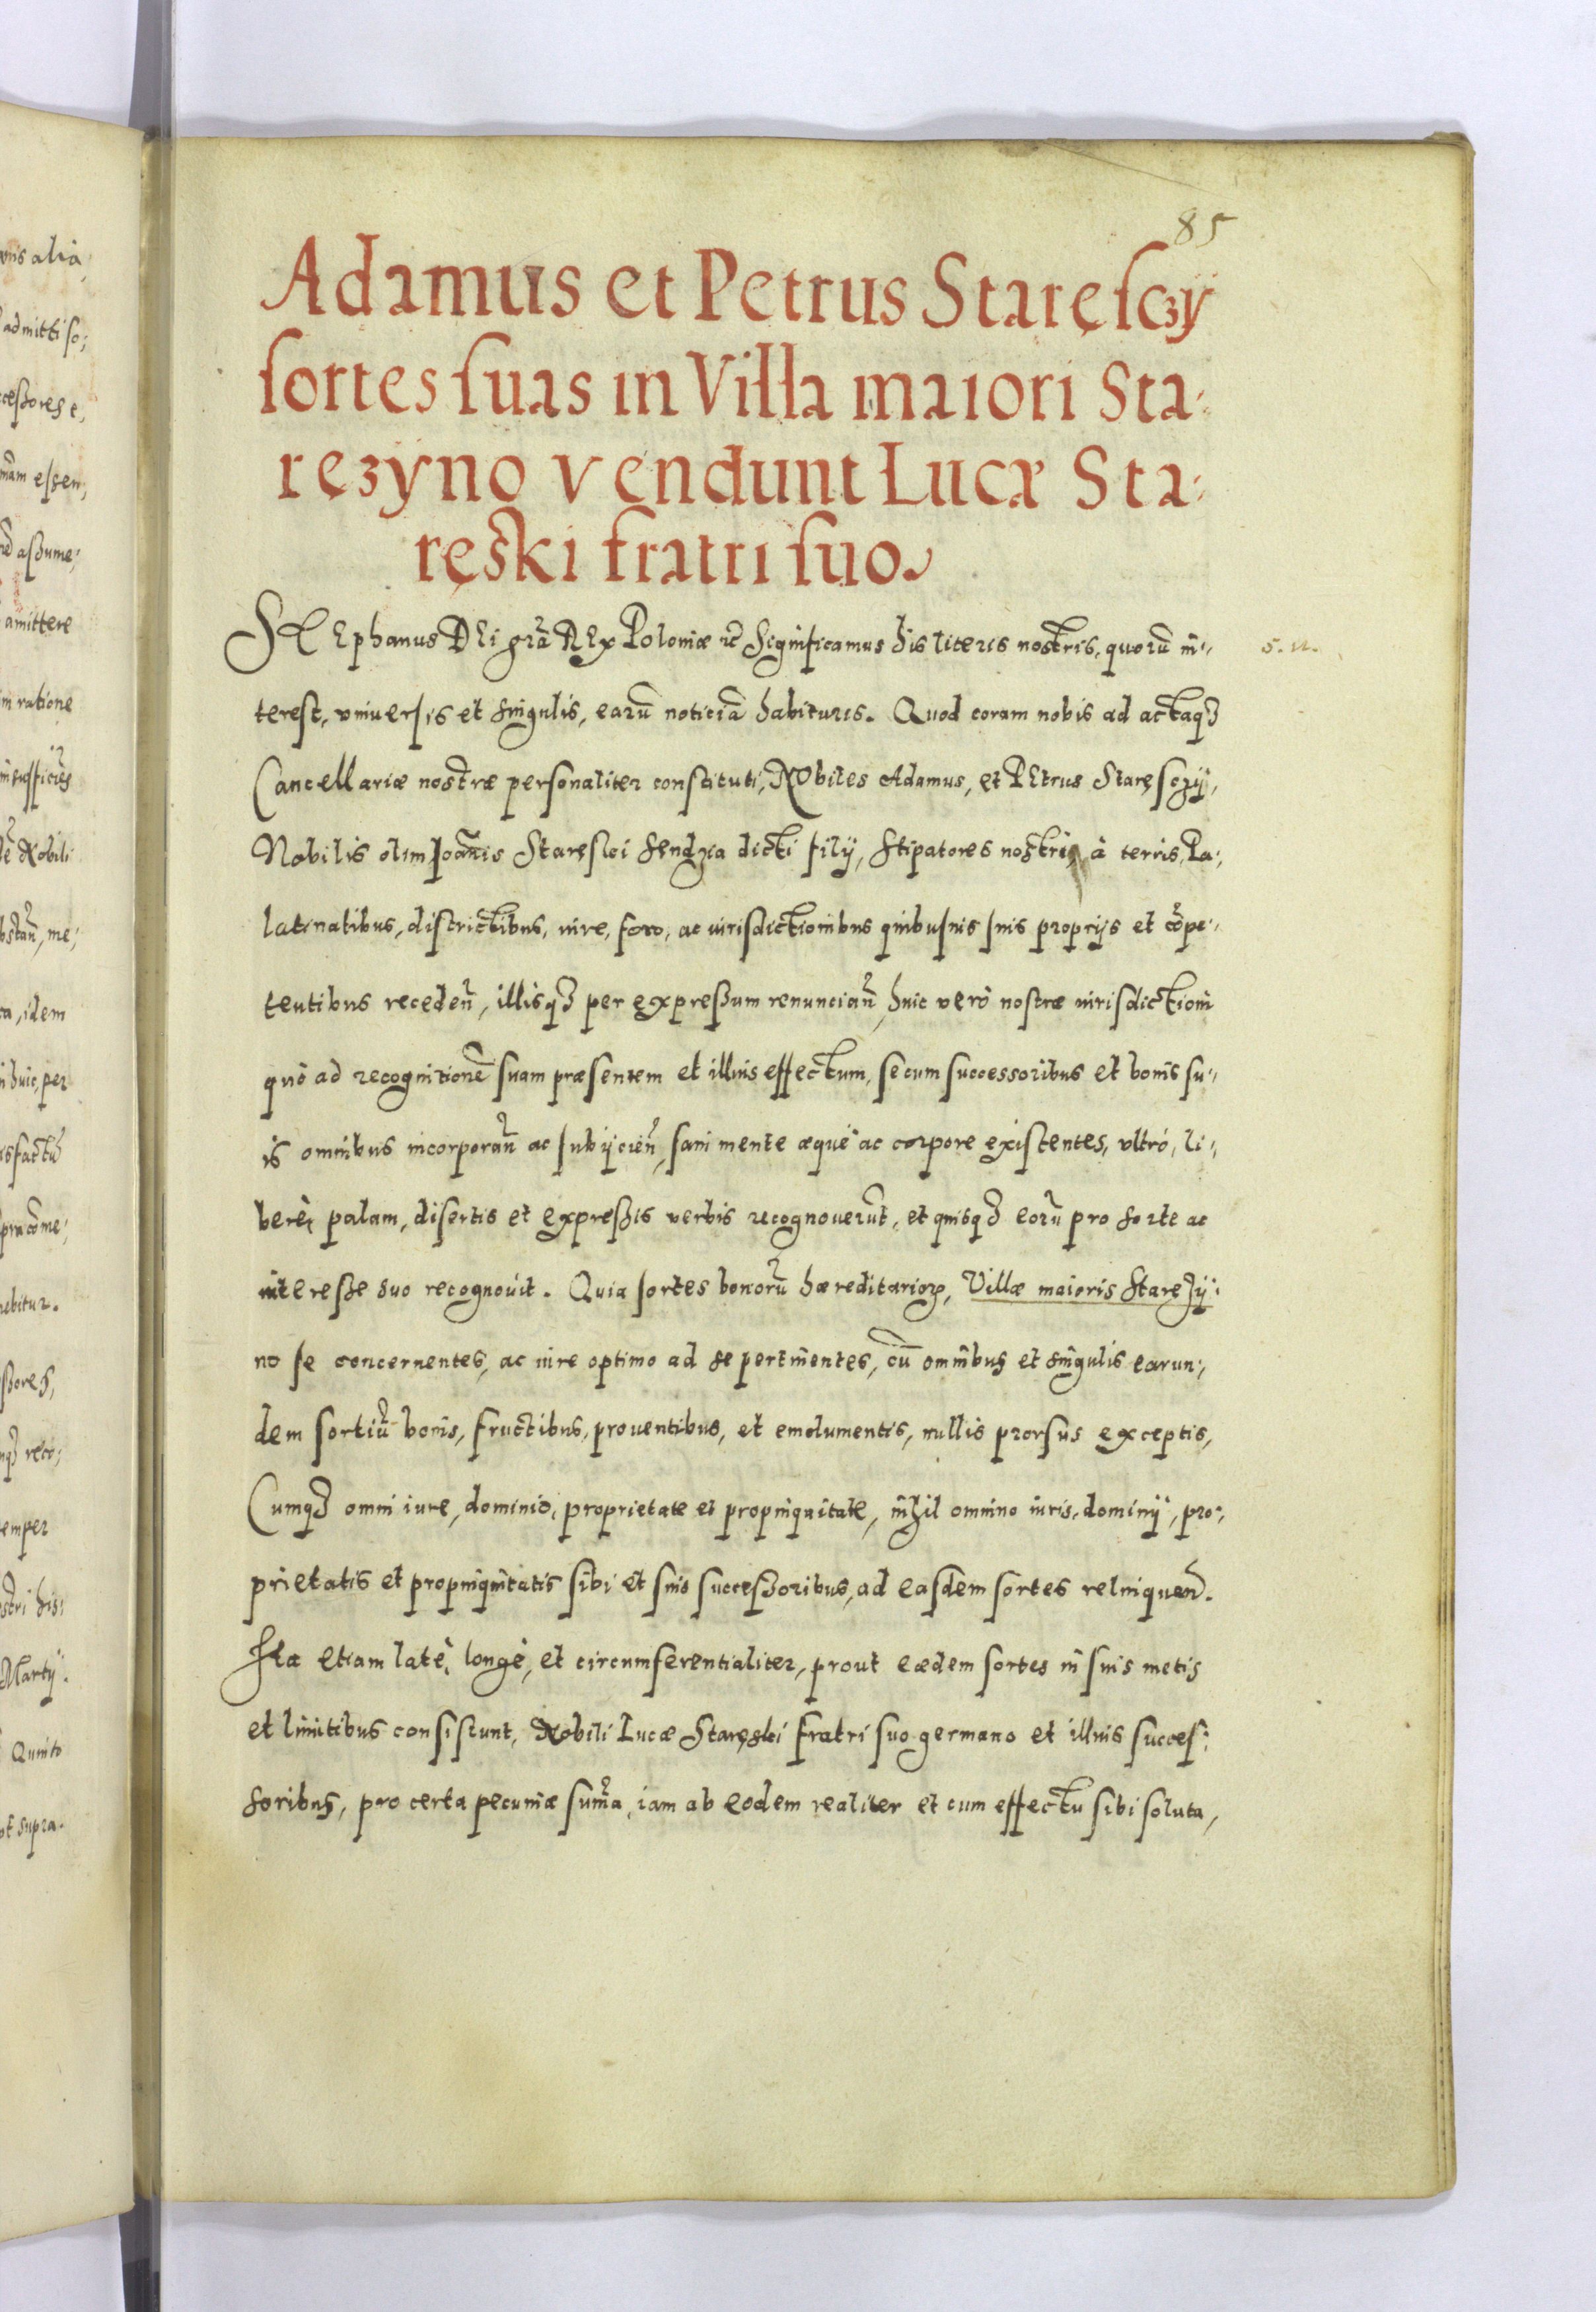 85
Adamus et Petrus Staręsczÿ
sortes suas in Villa maiori Sta:
ręzyno vendunt Lucæ Sta:
ręski fratri suo.
Stephanus Dei grã Rex Poloniæ etc̃ Significamus his literis nostris, quorũ in:
s. n.
terest, vniuersis et singulis, earũ noticiã habituris. Quod coram nobis ad actaqȝ
Cancellariæ nostræ personaliter constituti, Nobiles Adamus, et Petrus Staręsczÿ,
Nobilis olim Joañis Staręski Sendzia dicti filij, Stipatores nostri, à terris, Pa:
latinatibus, districtibus, iure, foro, ac iurisdictionibus quibusuis suis proprijs et cõpe:
tentibus receden̄, illisqȝ per expressum renuncian̄, huic verò nostræ iurisdictioni
quò ad recognitionẽ suam præsentem et illius effectum, se cum successoribus et bonis su:
is omnibus incorporan̄ ac subijcien̄, sani mente æquè ac corpore existentes, vltrò, li:
berè, palam, disertis et expressis verbis recognouerũt, et quisqȝ eorũ pro sorte ac
interesse suo recognouit. Quia sortes bonorũ hæreditarioꝝ, Villæ maioris Staręzÿ:
no se concernentes, ac iure optimo ad se pertinentes, cũ omnibus et singulis earun:
dem sortiũ bonis, fructibus, prouentibus, et emolumentis, nullis prorsus exceptis,
Cumqȝ omni iure, dominio, proprietate et propinquitate, nihil omnino iuris, dominij, pro:
prietatis et propinquitatis sibi et suis successoribus, ad easdem sortes relinquen̄.
Ita etiam latè, longè, et circumferentialiter, prout eædem sortes in suis metis
et limitibus consistunt, Nobili Lucæ Staręski fratri suo germano et illius succes:
soribus, pro certa pecuniæ sum̃a, iam ab eodem realiter et cum effectu sibi soluta,